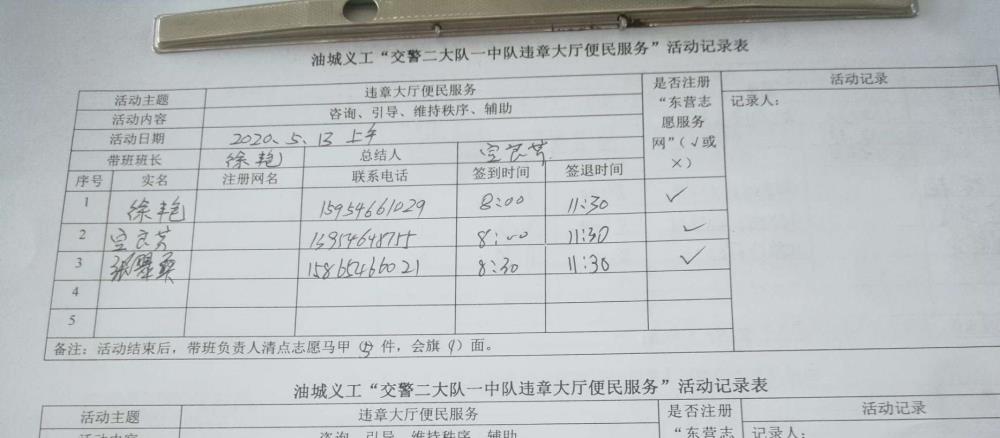 油城义工“交警二大队一中队违章大厅便民服务”活动记录表
活动主题 违章大厅便民服务 是否注册“东营志愿服务网”(√或×) 活动记录
活动内容 咨询、引导、维持秩序、辅助 记录人:
活动日期 2020.5.13 上午
带班班长 徐艳 总结人
序号 实名 注册网名 联系电话 签到时间 签退时间
1 徐艳 15954661029 8:00 11:30 ✓
2 13954648755 8:00 11:30 ✓
3 15865466021 8:30 11:30 ✓
4
5
备注:活动结束后,带班负责人清点志愿马甲( )件,会旗( )面。
油城义工“交警二大队一中队违章大厅便民服务”活动记录表
活动主题 违章大厅便民服务 是否注册 活动记录
活动内容 咨询、引导、维持秩序、辅助 “东营志 记录人: